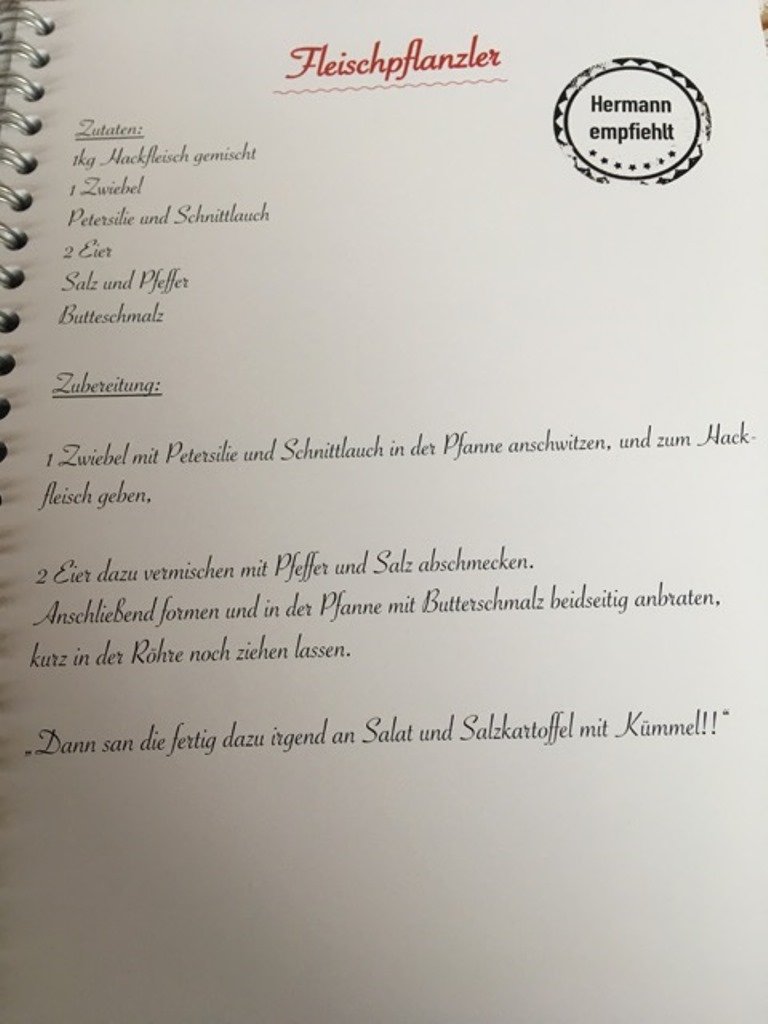 Fleischpflanzler
Hermann
empfiehlt
Zutaten:
1kg Hackfleisch gemischt
1 Zwiebel
Petersilie und Schnittlauch
2 Eier
Salz und Pfeffer
Butteschmalz
Zubereitung:
1 Zwiebel mit Petersilie und Schnittlauch in der Pfanne anschwitzen, und zum Hack-
fleisch geben,
2 Eier dazu vermischen mit Pfeffer und Salz abschmecken.
Anschließend formen und in der Pfanne mit Butterschmalz beidseitig anbraten,
kurz in der Röhre noch ziehen lassen.
„Dann san die fertig dazu irgend an Salat und Salzkartoffel mit Kümmel!!“